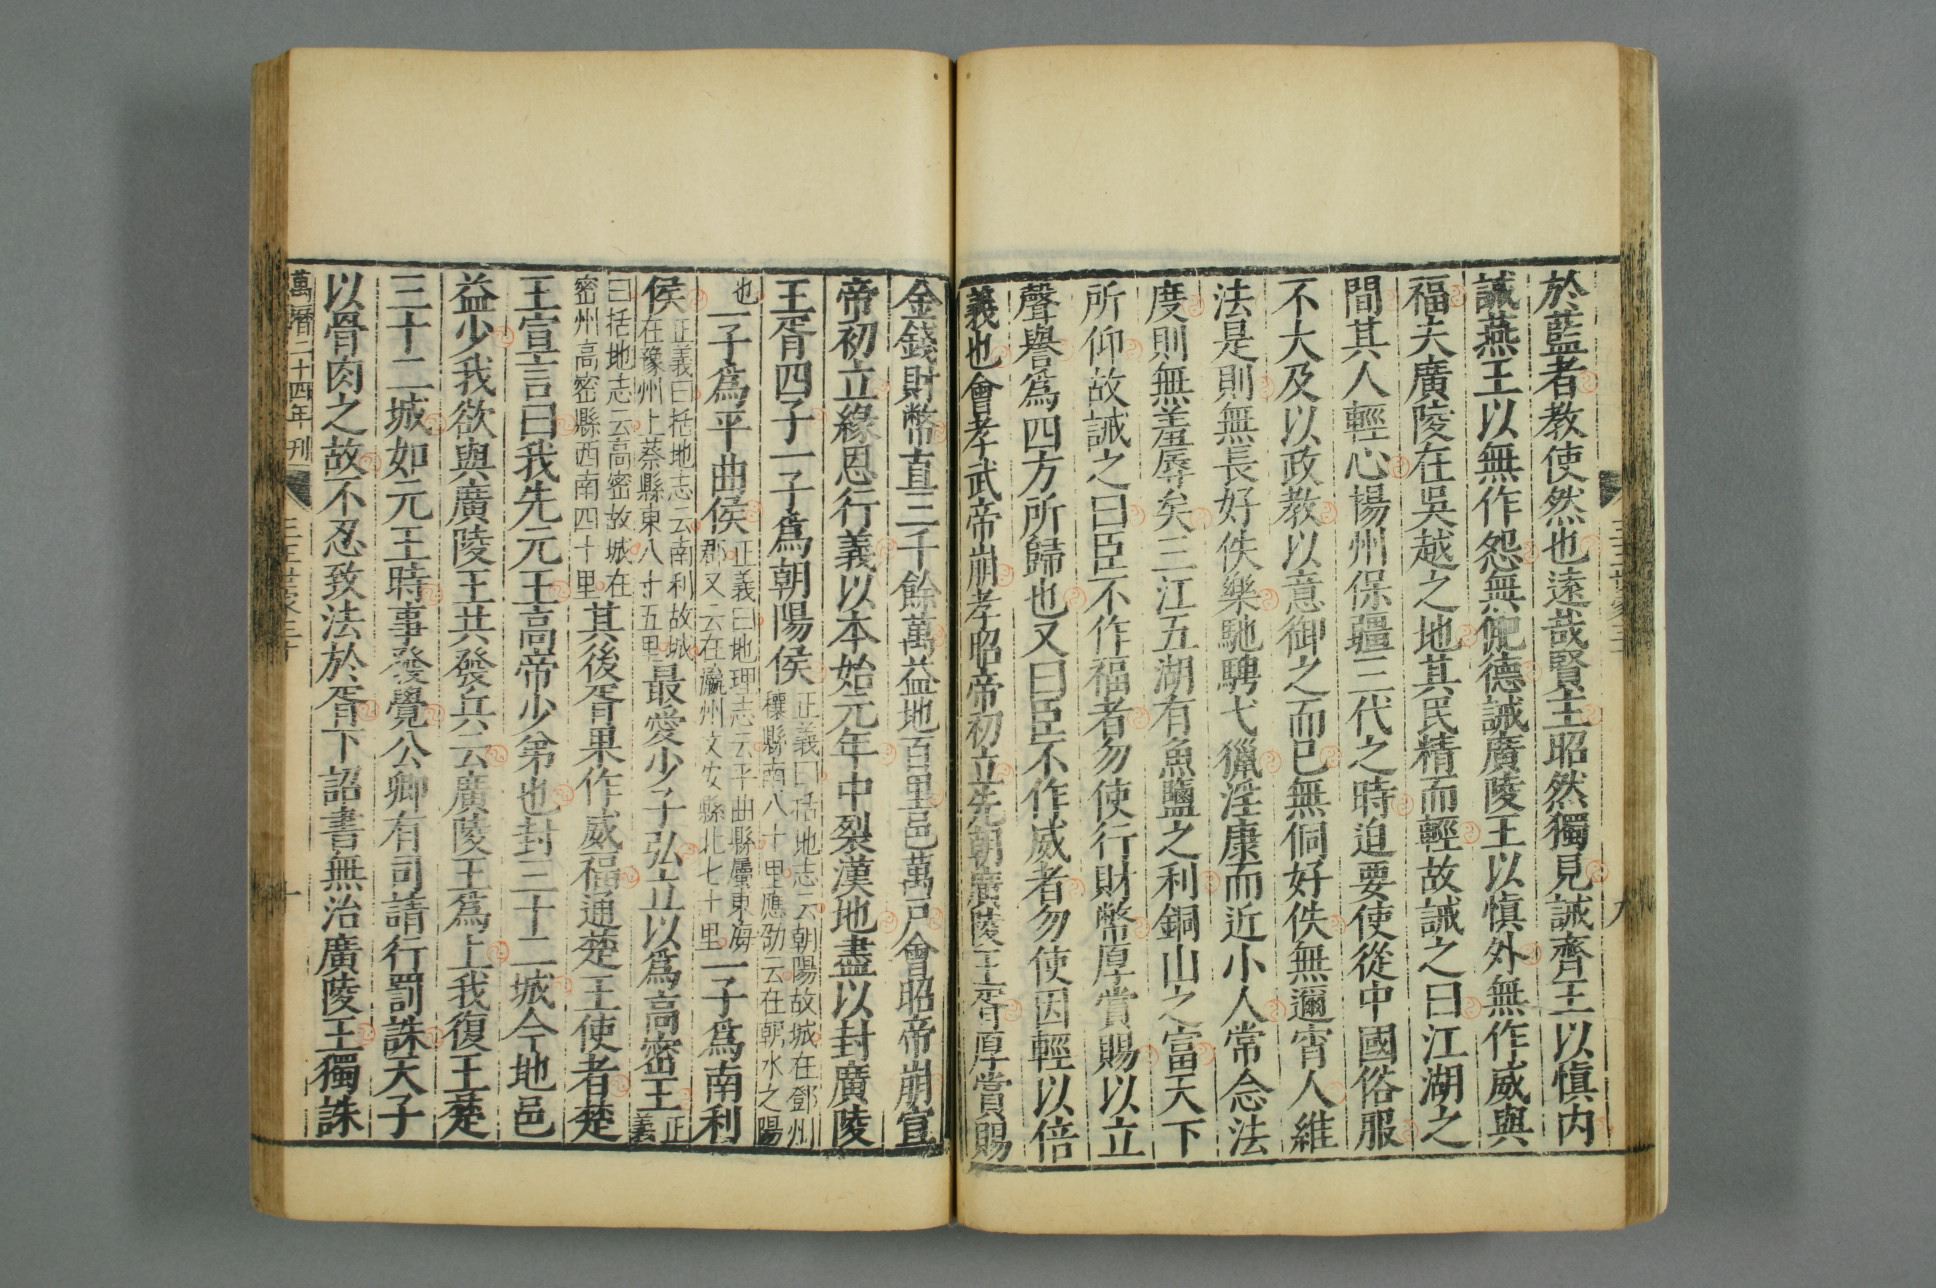 三王世家三十 九
於藍者教使然也遠哉賢主昭然獨見誡齊王以慎内
誡燕王以無作怨無俷德誡廣陵王以慎外無作威與
福夫廣陵在吳越之地其民精而輕故誡之曰江湖之
間其人輕心揚州保疆三代之時迫要使從中國俗服
不大及以政教以意御之而已無侗好佚無邇宵人維
法是則無長好佚樂馳騁弋獵淫康而近小人常念法
度則無羞辱矣三江五湖有魚鹽之利銅山之富天下
所仰故誡之曰臣不作福者勿使行財幣厚賞賜以立
聲譽爲四方所歸也又曰臣不作威者勿使因輕以倍
義也會孝武帝崩孝昭帝初立先朝廣陵王胥厚賞賜
金錢財幣直三千餘萬益地百里邑萬户會昭帝崩宣
帝初立緣恩行義以本始元年中裂漢地盡以封廣陵
王胥四子一子爲朝陽侯正義曰括地志云朝陽故城在鄧州穰縣南八十里應劭云在朝水之陽
也一子爲平曲侯正義曰地理志云平曲縣屬東海郡又云在瀛州文安縣北七十里一子爲南利
侯正義曰括地志云南利故城在豫州上蔡縣東八十五里最愛少子弘立以爲高密王正義
曰括地志云高密故城在密州高密縣西南四十里其後胥果作威福通楚王使者楚
王宣言曰我先元王高帝少弟也封三十二城今地邑
益少我欲與廣陵王共發兵云廣陵王爲上我復王楚
三十二城如元王時事發覺公卿有司請行罰誅天子
以骨肉之故不忍致法於胥下詔書無治廣陵王獨誅
萬曆二十四年刊 三王世家三十 十